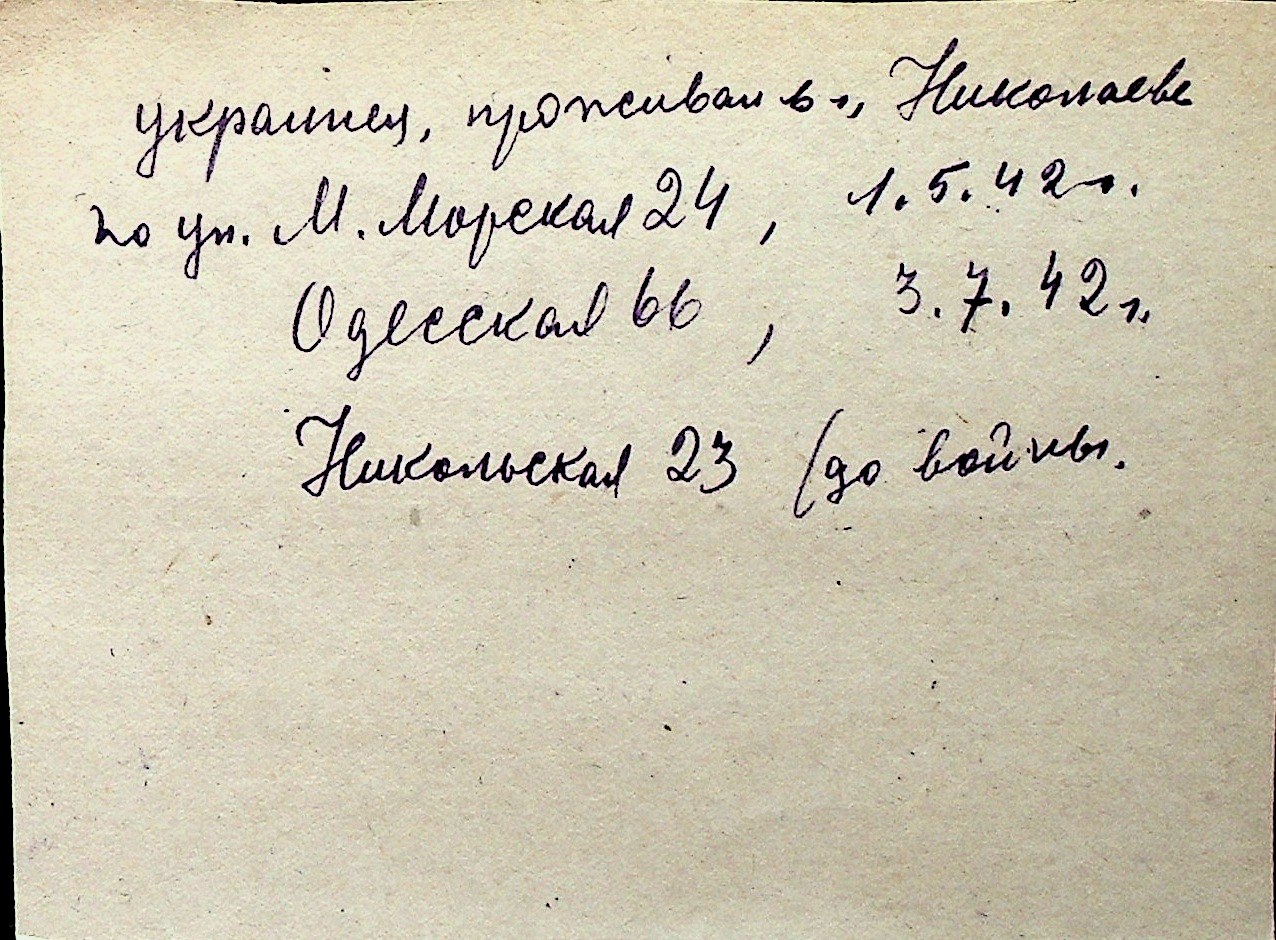 украинец, проживал в г. Николаеве
по ул. М. Морская 24, 1.5.42 г.
Одесская 66, 3.7.42 г.
Никольская 23 (до войны.